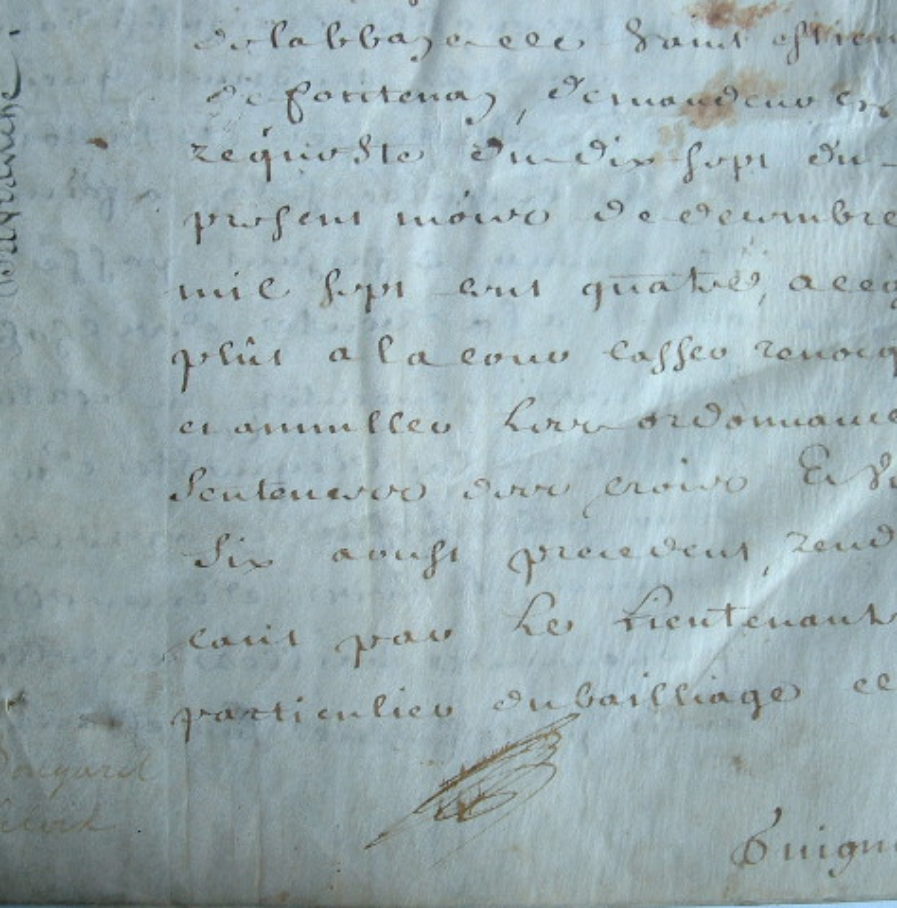 de labbaye ... Saint estien
de fontenay, demandeur en
requeste du dix sept du
present mois de decembre
mil sept cent quatre, a ce q
plût a la cour casser revocq
et annuller les ordonnance
Sentences des trois Et Vi
Six aoust precedent, rend
par le Lieutenant
particulier du bailliage ce
Guign